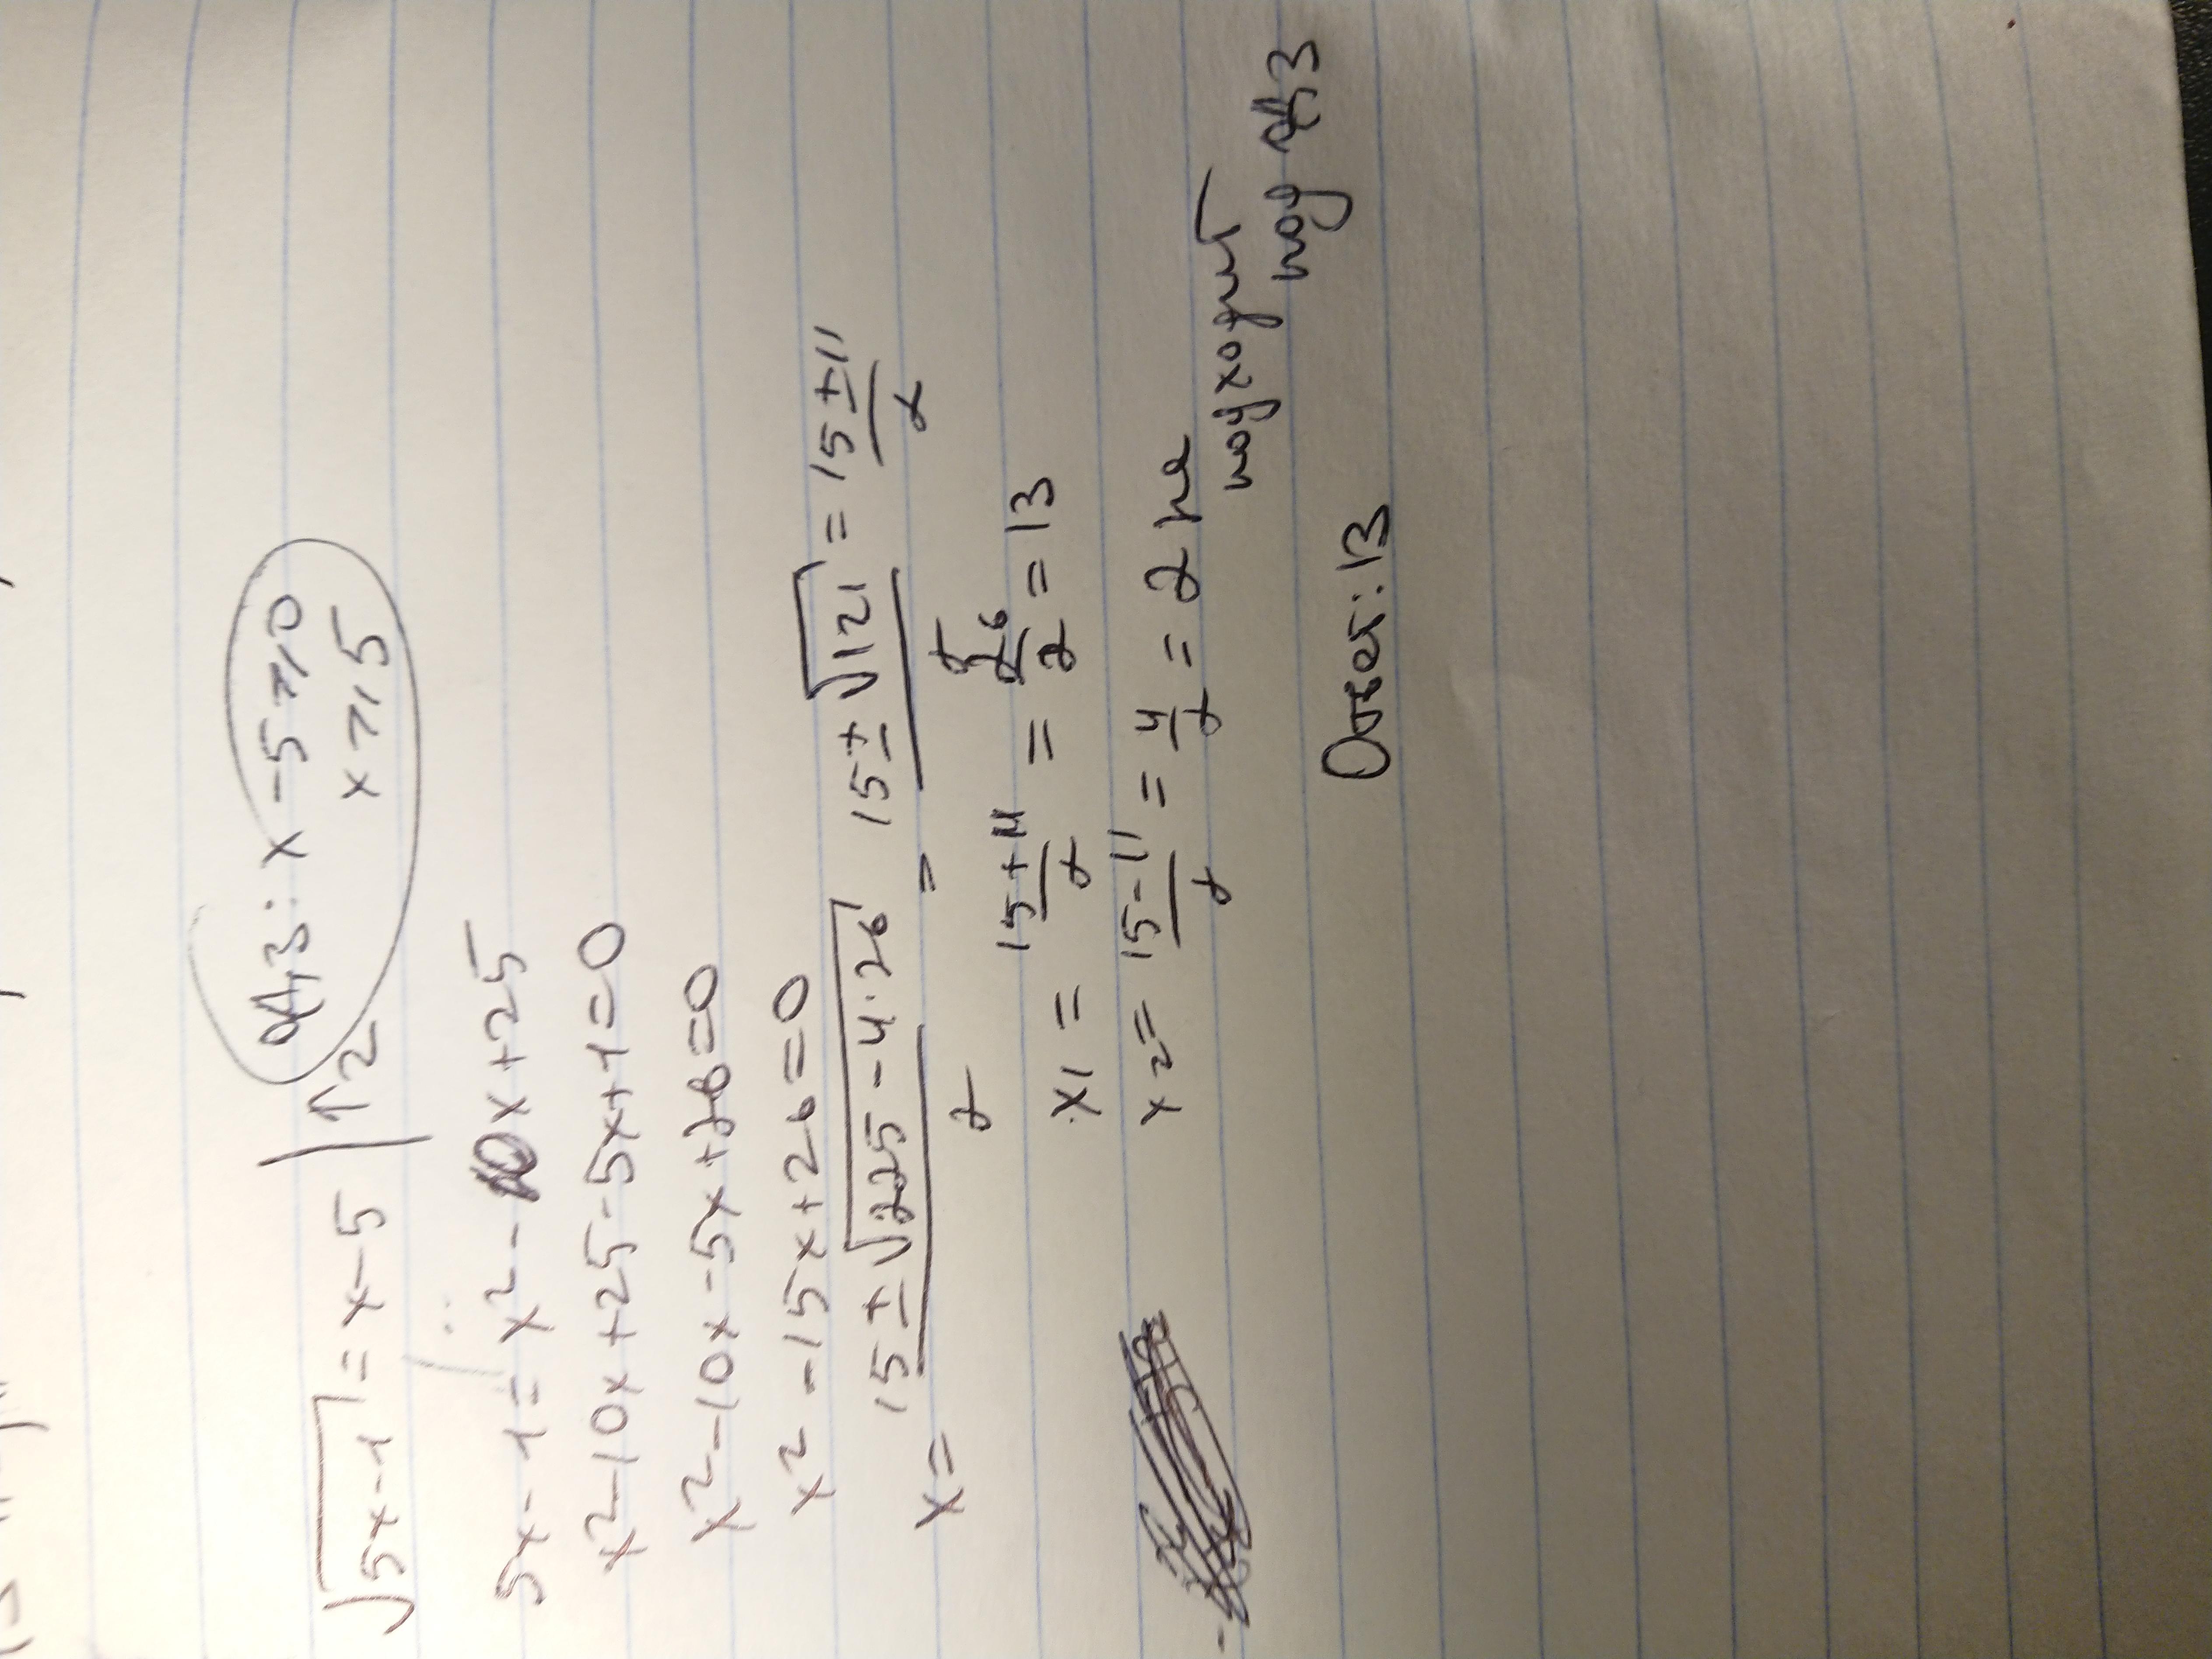 ОДЗ: x-5⩾0
x⩾5
√(5x-1) = x-5 |↑2
5x-1 = x²-10x+25
x²-10x+25-5x+1=0
x²-10x-5x+26=0
x²-15x+26=0
x= (15±√(225-4·26))/2 = (15±√121)/2 = (15±11)/2
x1 = (15+11)/2 = 26/2 = 13
x2 = (15-11)/2 = 4/2 = 2 не
подходит
под ОДЗ
Ответ: 13